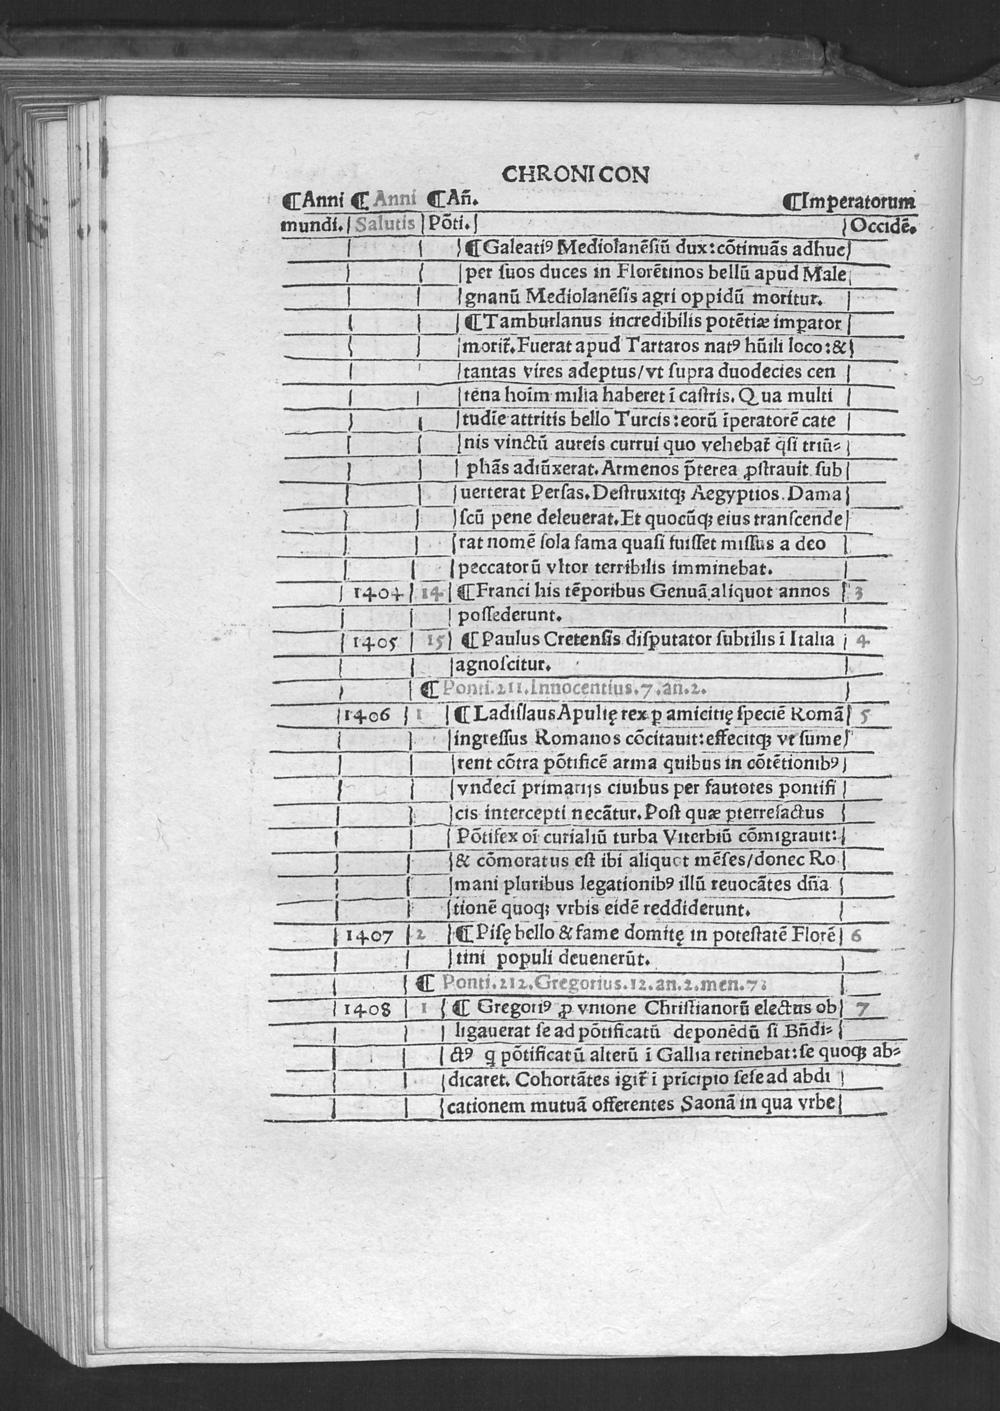 CHRONICON
⁋Anni ⁋ Anni ⁋Añ. ⁋Imperatorum
mundi. Salutis Põti. Occidẽ.
⁋Galeatiꝰ Mediolanẽsiũ dux:cõtinuãs adhuc
per suos duces in Florẽtinos bellũ apud Male
gnanũ Mediolanẽsis agri oppidũ moritur.
⁋Tamburlanus incredibilis potẽtiæ imꝑator
morit̃. Fuerat apud Tartaros natꝰ hũili loco:&
tantas vires adeptus/vt supra duodecies cen
tena hoim̃ milia haberet ĩ castris. Qua multi
tudĩe attritis bello Turcis:eorũ ĩperatorẽ cate
nis vinctũ aureis currui quo vehebat̃ q̃si triũ⸗
phãs adiũxerat. Armenos p̃terea ꝓstrauit sub
uerterat Persas. Destruxitqꝫ Aegyptios. Dama
scũ pene deleuerat. Et quocũqꝫ eius transcende
rat nomẽ sola fama quasi fuisset missus a deo
peccatorũ vltor terribilis imminebat.
1404 14 ⁋Franci his tẽporibus Genuã aliquot annos 3
possederunt.
1405 15 ⁋Paulus Cretensis disputator subtilis ĩ Italia 4
agnoscitur.
⁋ Ponti.211.Innocentius.7.an.2.
1406 1 ⁋Ladislaus Apulię rex ꝑ amicitię speciẽ Romã 5
ingressus Romanos cõcitauit:effecitqꝫ vt sume
rent cõtra põtificẽ arma quibus in cõtẽtionibꝰ
vndecĩ primarijs ciuibus per fautotes pontifi
cis intercepti necãtur. Post quæ ꝑterrefactus
Põtifex oĩ curialiũ turba Viterbiũ cõmigrauit:
& cõmoratus est ibi aliquot mẽses/donec Ro
mani pluribus legationibꝰ illũ reuocãtes dñia
tionẽ quoqꝫ vrbis eidẽ reddiderunt.
1407 2 ⁋Pisę bello & fame domitę in potestatẽ Florẽ 6
tini populi deuenerũt.
⁋ Ponti.212.Gregorius.12.an.2.men.7.
1408 1 ⁋ Gregoriꝰ ꝓ vnione Christianorũ electus ob 7
ligauerat se ad põtificatũ deponẽdũ si Bñdi⸗
ctꝰ q põtificatũ alterũ ĩ Gallia retinebat:se quoqꝫ ab⸗
dicaret. Cohortãtes igit̃ ĩ prĩcipio sese ad abdi
cationem mutuã offerentes Saonã in qua vrbe